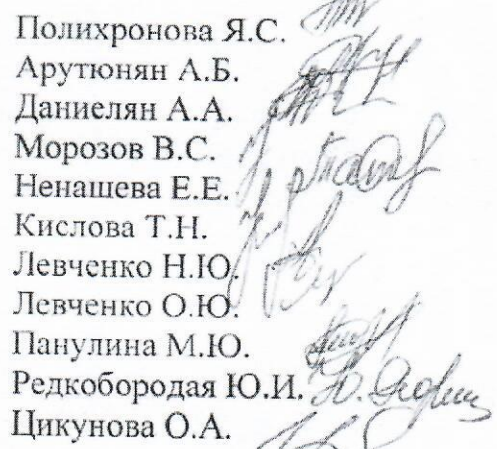 Полихронова Я.С.
Арутюнян А.Б.
Даниелян А.А.
Морозов В.С.
Ненашева Е.Е.
Кислова Т.Н.
Левченко Н.Ю.
Левченко О.Ю.
Панулина М.Ю.
Редкобородая Ю.И.
Цикунова О.А.